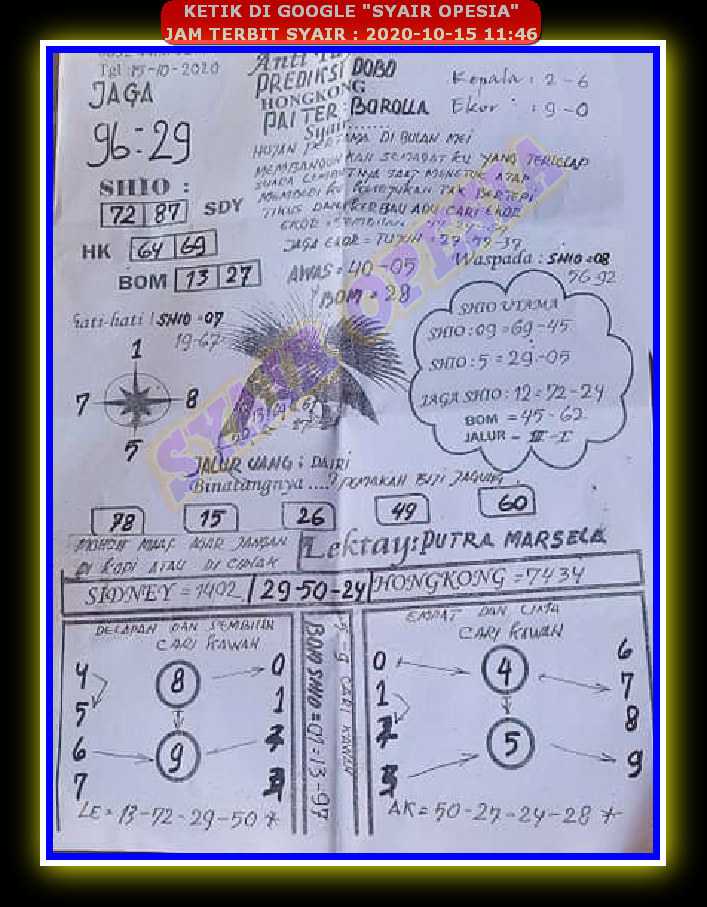 KETIK DI GOOGLE "SYAIR OPESIA"
JAM TERBIT SYAIR : 2020-10-15 11:46
Tgl :15-10-2020
JAGA
96-29
SHIO :
72 87 SDY
HK 64 69
BOM 13 27
PREDIKSI DOBO
HONGKONG
PAITER : BOROLLA
Syair......
Kepala : 2-6
Ekor : 9-0
HUJAN PERTAMA DI BULAN MEI
MEMBANGUNKAN SEMABAT KU YANG TERLELAP
SUARA LEMBUTNYA SAAT MENGETUK ATAP
MEMBERI KU KESEJUKAN TAK BERTEPI
TIKUS DAN KERBAU ADU CARI EKOR
EKOR = SEMBILAN
JAGA EKOR = TUJUH = 27-77-37
AWAS = 40-05
BOM = 28
Waspada : SHIO = 08
56-92
Hati-hati ! SHIO = 07
19-67
1
7 8
5
SHIO UTAMA
SHIO : 09 = 69-45
SHIO : 5 = 29-05
JAGA SHIO : 12 = 72-24
BOM = 45-62
JALUR - III-I
SYAIR OPESIA
JALUR UANG : DAIRI
Binatangnya ....? PEMAKAN BIJI JAGUNG
78 15 26 49 60
MOHON MAAF AGAR JANGAN
DI KOPI ATAU DI CETAK
Lektay: PUTRA MARSELA
SIDNEY = 1402 29-50-24 HONGKONG = 7434
DELAPAN DAN SEMBILAN
CARI KAWAN
4 8 0
5 1
6 9
7
LE = 13-72-29-50 *
BOM SHIO = 01 = 13-97
CARI KAWAN
EMPAT DAN LIMA
CARI KAWAN
0 4 6
1 7
5 8
9
AK = 50-27-24-28 *